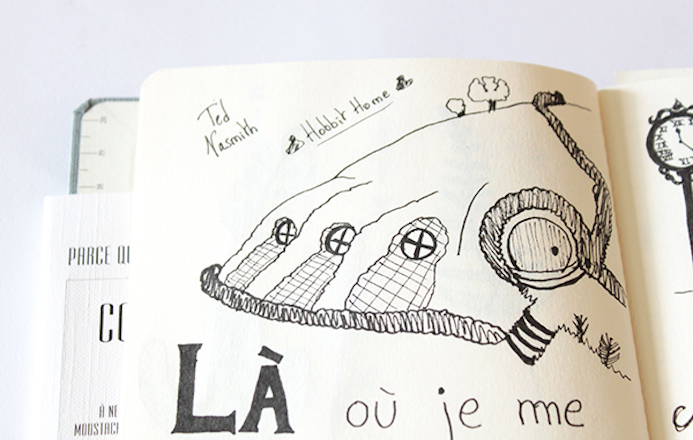 Ted
Nasmith
Hobbit Home
PARCE QU
CO
À NE
MOUSTACH
LÀ où je me